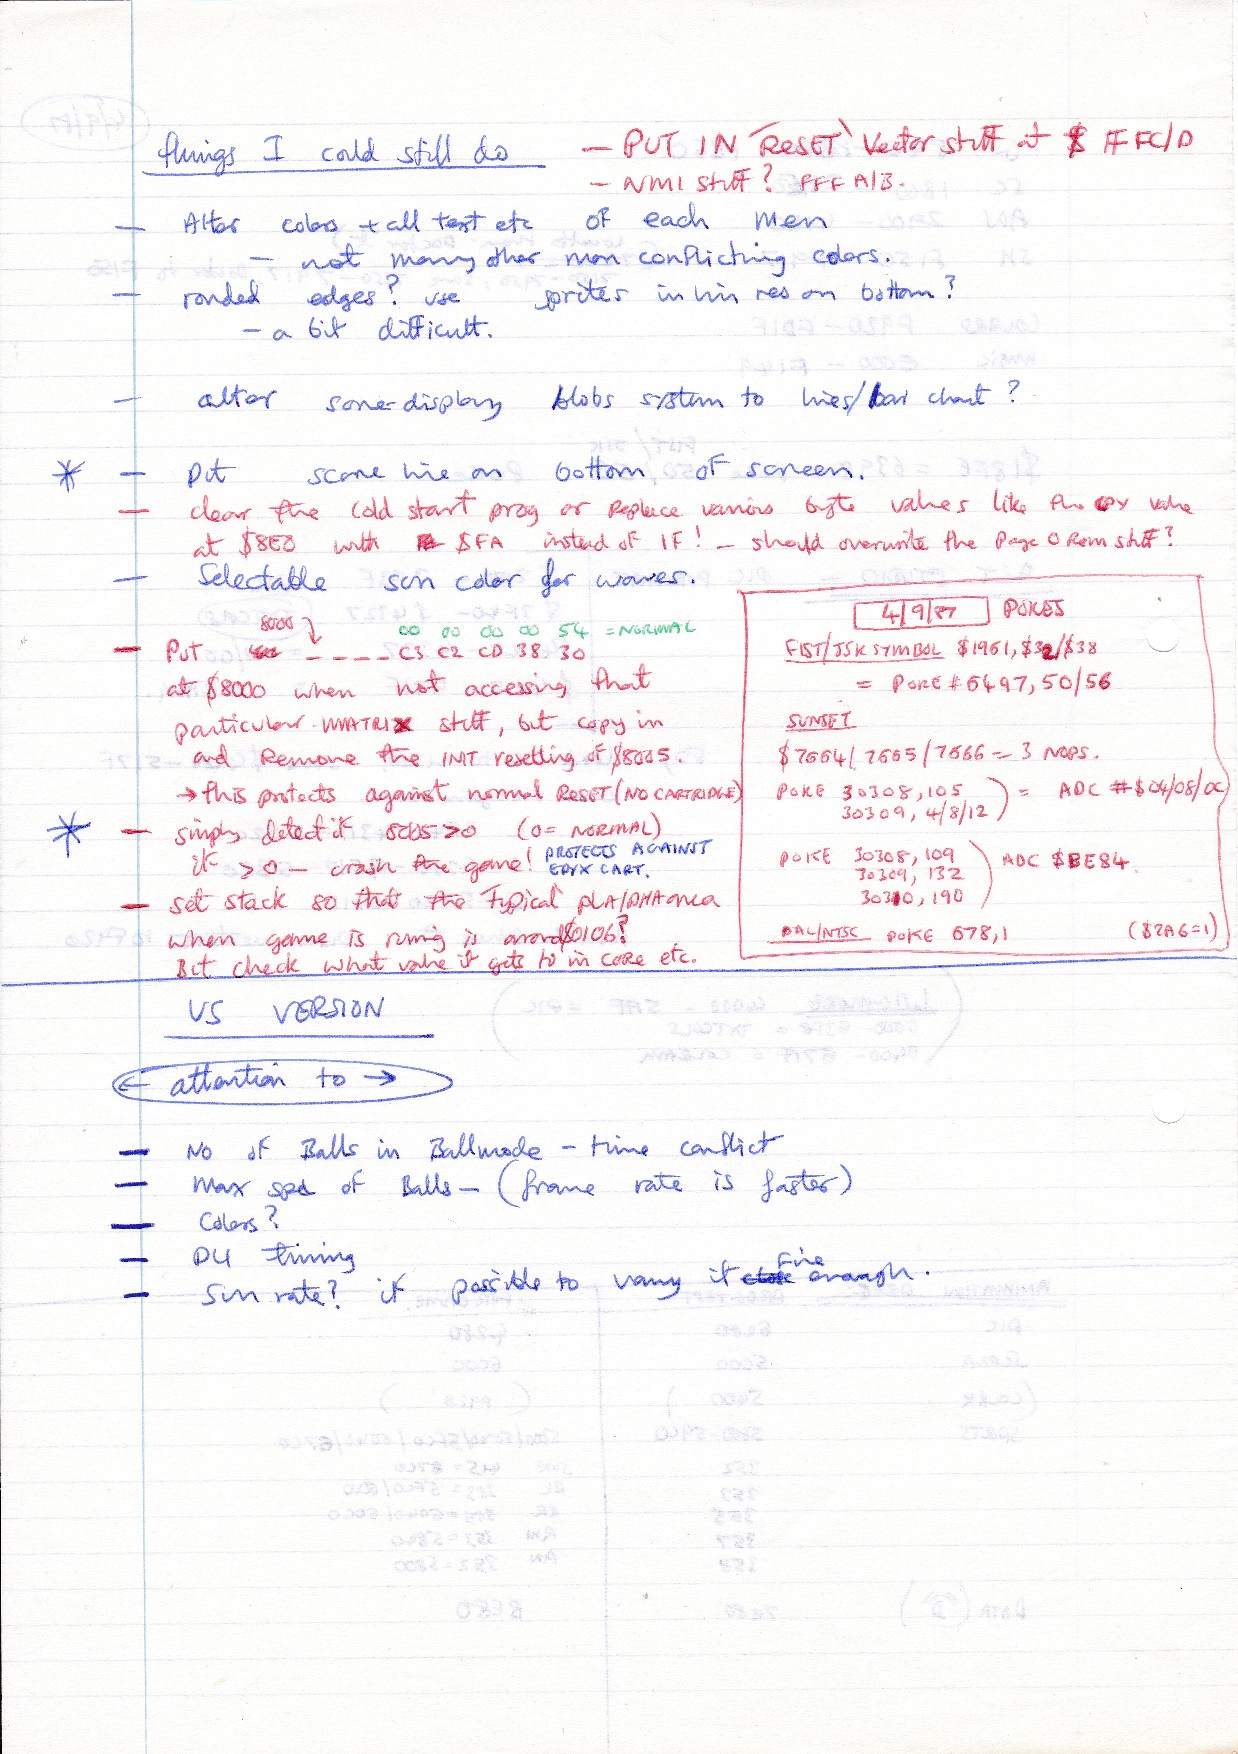 things I could still do
— PUT IN 'RESET' Vector stuff at $FFFC/D
— NMI stuff? FFFA/B.
— Alter colors + all text etc of each men
— not many other men conflicting colors.
— ronded edges? use sprites in hin res on bottom?
— a bit difficult.
— alter score-display blobs system to lines/bar chart?
* — put score line on bottom of screen.
— clear the cold start prog or Replace various byte values like the CPX value
at $8E0 with $FA instead of 1F! — should overwrite the Page 0 Rom stuff?
— Selectable scn color for waves.
8000
00 00 00 00 54 = NORMAL
— Put _ _ _ _ C3 C2 CD 38 30
at $8000 when not accessing that
particular MATRIX stuff, but copy in
and Remove the INIT resetting of $8005.
→ this protects against normal RESET (NO CARTRIDGE)
* — simply detect if 8005 >0 (0= NORMAL)
if >0 — crash the game! PROTECTS AGAINST
EPYX CART.
— set stack so that the Typical PLA/PHA area
when game is runing is around $0106?
But check what value it gets to in core etc.
4/9/87 POKES
FIST/JSK SYMBOL $1961, $32/$38
= POKE #6497, 50/56
SUNSET
$7664/7665/7666 — 3 NOPS.
POKE 30308, 105
30309, 4/8/12 ) = ADC #$04/08/0C
POKE 30308, 109
30309, 132
30310, 190 ) ADC $BE84.
PAL/NTSC POKE 678,1 ($2A6=1)
US VERSION
← attention to →
— No of Balls in Ballmode — time conflict
— Max spd of Balls — (frame rate is faster)
— Colors?
— DLI timing
— Sun rate? if possible to vary it fine enough.